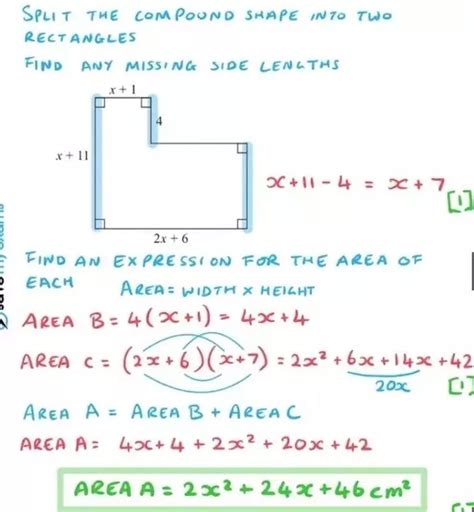 SPLIT THE COMPOUND SHAPE INTO TWO
RECTANGLES
FIND ANY MISSING SIDE LENGTHS
x + 1
4
x + 11
x+11-4 = x+7
[1]
2x + 6
FIND AN EXPRESSION FOR THE AREA OF
EACH AREA = WIDTH × HEIGHT
AREA B = 4(x+1) = 4x+4
AREA C = (2x+6)(x+7) = 2x² + 6x + 14x + 42
20x
[1]
AREA A = AREA B + AREA C
AREA A = 4x+4 + 2x² + 20x + 42
AREA A = 2x² + 24x + 46 cm²